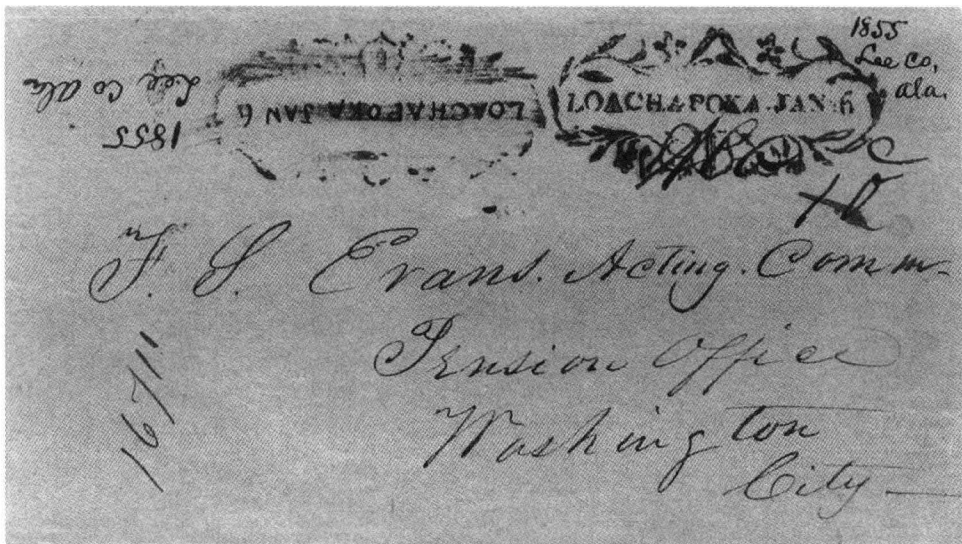 1855
Lee co,
ala.
LOACHAPOKA JAN 6
LOACHAPOKA JAN 6
1855
Lee Co ala
F. S. Evans. Acting. Comm-
Pension Office
Washington
City—
16711